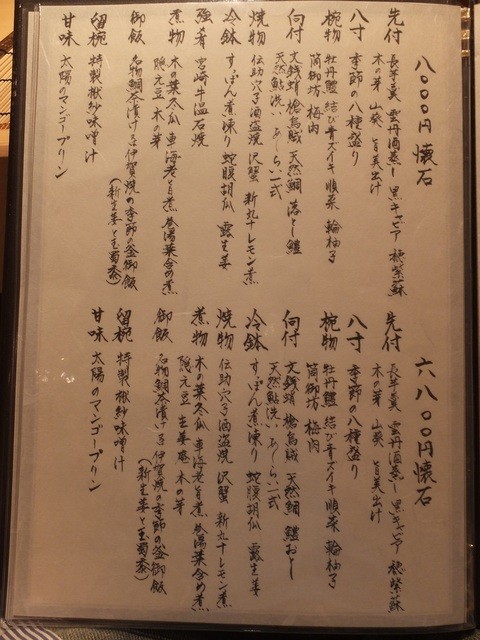 八〇〇〇円 懐石
先付 長芋羹 雲丹酒蒸し 黒キャビア 穂紫蘇
木の芽 山葵 旨美出汁
八寸 季節の八種盛り
椀物 牡丹鱧 結び青ズイキ 順菜 輪柚子
蔺御坊 梅肉
向付 文銭蛸 槍烏賊 天然鯛 落とし鱧
天然鮎洗い あしらい一式
焼物 伝助穴子酒盗焼 沢蟹 新丸十レモン煮
冷鉢 すっぽん煮凍り 蛇腹胡瓜 露生姜
強肴 宮崎牛温石焼
煮物 木の葉冬瓜 車海老旨煮 巻湯葉含め煮
隠元豆 木の芽
御飯 名物鯛茶漬け or 伊賀焼の季節の釜御飯
(新生姜と玉蜀黍)
留椀 特製 味噌汁
甘味 太陽のマンゴープリン
六八〇〇円 懐石
先付 長芋羹 雲丹酒蒸し 黒キャビア 穂紫蘇
木の芽 山葵 旨美出汁
八寸 季節の八種盛り
椀物 牡丹鱧 結び青ズイキ 順菜 輪柚子
御坊 梅肉
向付 文銭蛸 槍烏賊 天然鯛 鱧おとし
天然鮎洗い あしらい一式
冷鉢 すっぽん煮凍り 蛇腹胡瓜 露生姜
焼物 伝助穴子酒盗焼 沢蟹 新丸十レモン煮
煮物 木の葉冬瓜 車海老旨煮 巻湯葉含め煮
隠元豆 生姜庵 木の芽
御飯 名物鯛茶漬け or 伊賀焼の季節の釜御飯
(新生姜と玉蜀黍)
留椀 特製 味噌汁
甘味 太陽のマンゴープリン